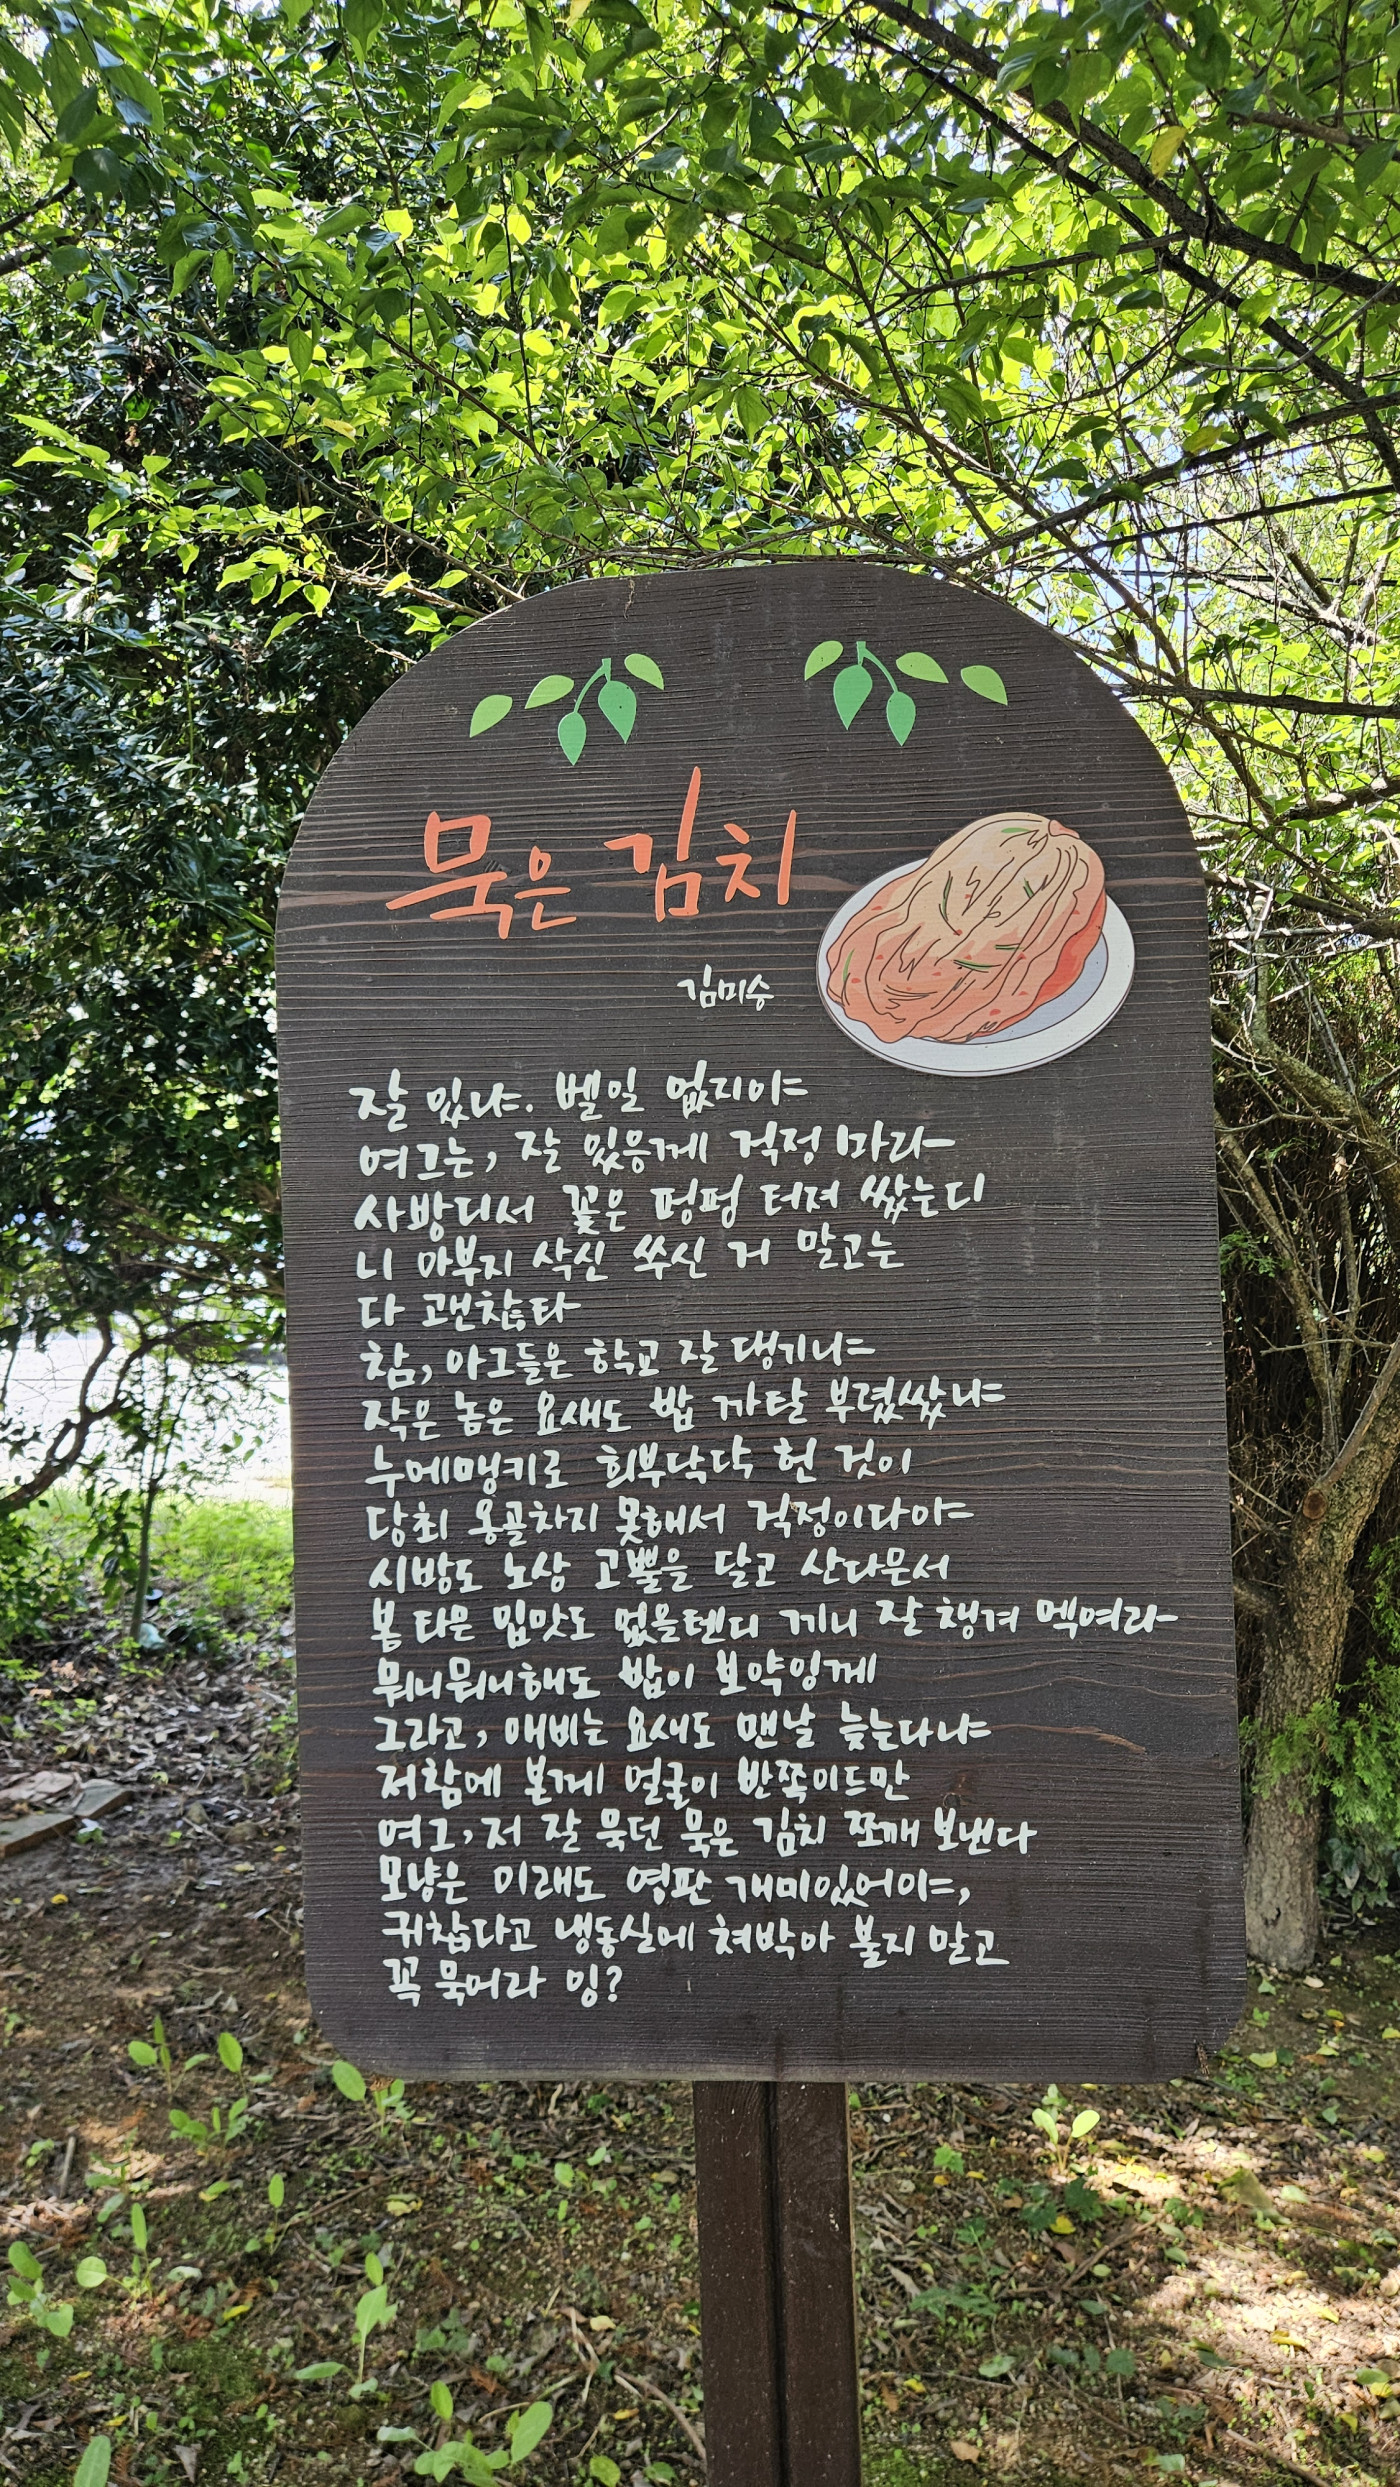 묵은 김치
김미승
잘 있냐. 벨일 없지야
여그는, 잘 있응께 걱정 마라
사방디서 꽃은 펑펑 터져 쌌는디
니 아부지 삭신 쑤신 거 말고는
다 괜찮타
참, 아그들은 학교 잘 댕기냐
작은 놈은 요새도 밥 까탈 부렸쌌냐
누에맹키로 희부닥닥 헌 것이
당최 옹골차지 못해서 걱정이다야
시방도 노상 고뿔을 달고 산다문서
봄 타믄 입맛도 없을텐디 끼니 잘 챙겨 멕여라
뭐니뭐니해도 밥이 보약잉께
그라고, 애비는 요새도 맨날 늦는다냐
저참에 본께 얼굴이 반쪽이드만
여그, 저 잘 묵던 묵은 김치 쪼깨 보낸다
모냥은 이래도 영판 개미있어야,
귀찮다고 냉동실에 쳐박아 불지 말고
꼭 묵어라 잉?